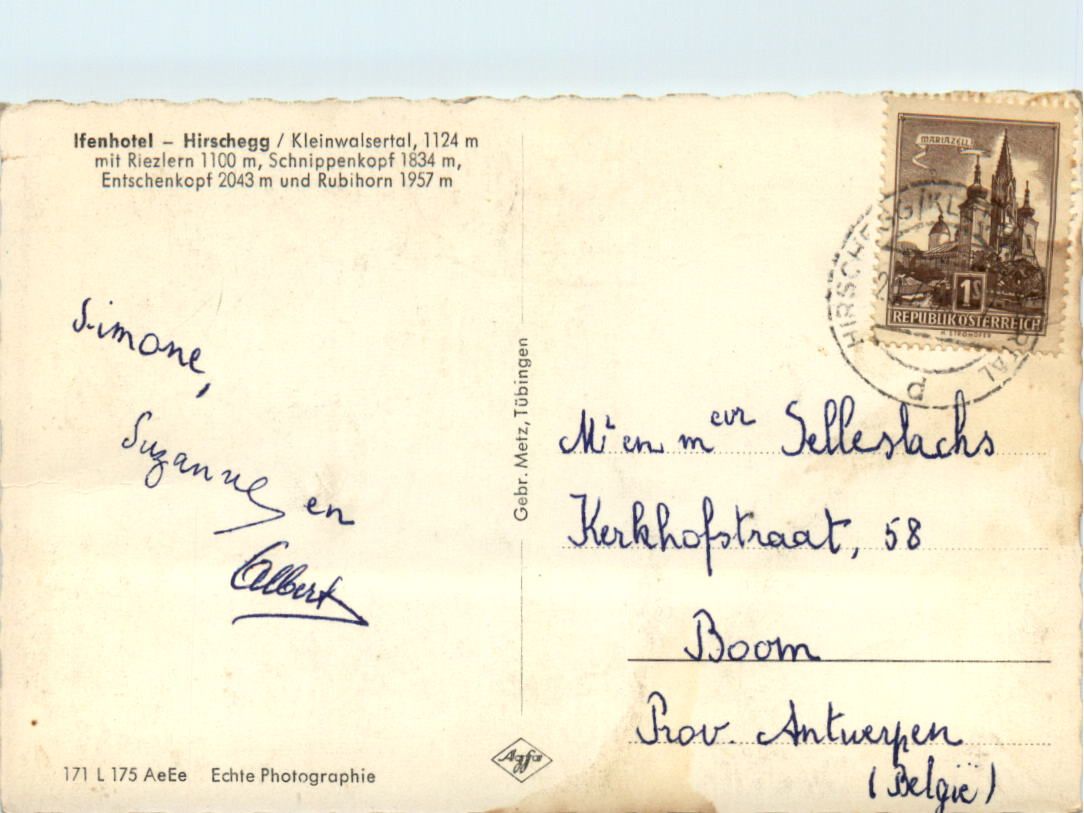 Ifenhotel – Hirschegg / Kleinwalsertal, 1124 m
mit Riezlern 1100 m, Schnippenkopf 1834 m,
Entschenkopf 2043 m und Rubihorn 1957 m
Simone,
Suzanne en
Albert
171 L 175 AeEe Echte Photographie
Gebr. Metz, Tübingen
Agfa
MARIAZELL
1S
REPUBLIK ÖSTERREICH
HIRSCHEGG/KL
d
Mr en mevr Selleslachs
Kerkhofstraat, 58
Boom
Prov. Antwerpen
(België)